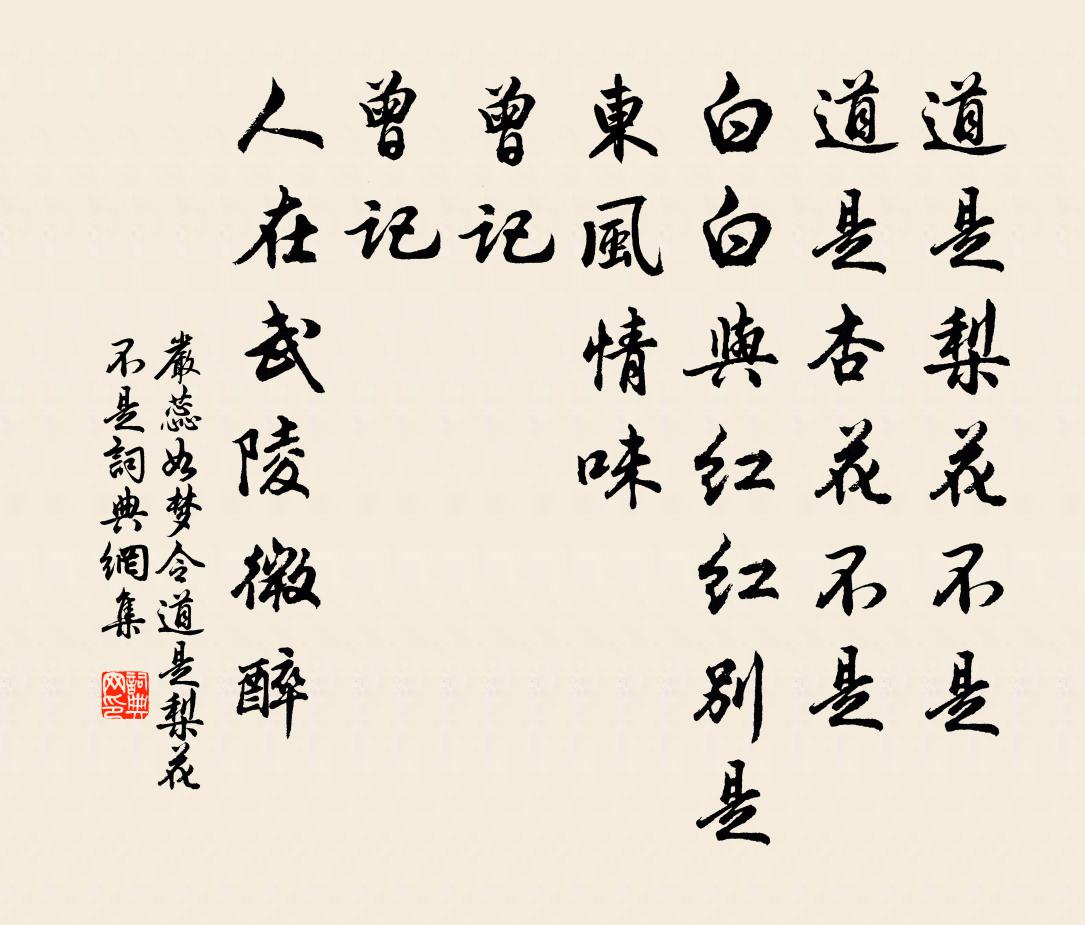 道是梨花不是
道是杏花不是
白白與红红別是
東風情味
曾記
曾記
人在武陵微醉
嚴蕊如梦令道是梨花
不是詞典網集
詞典
网印